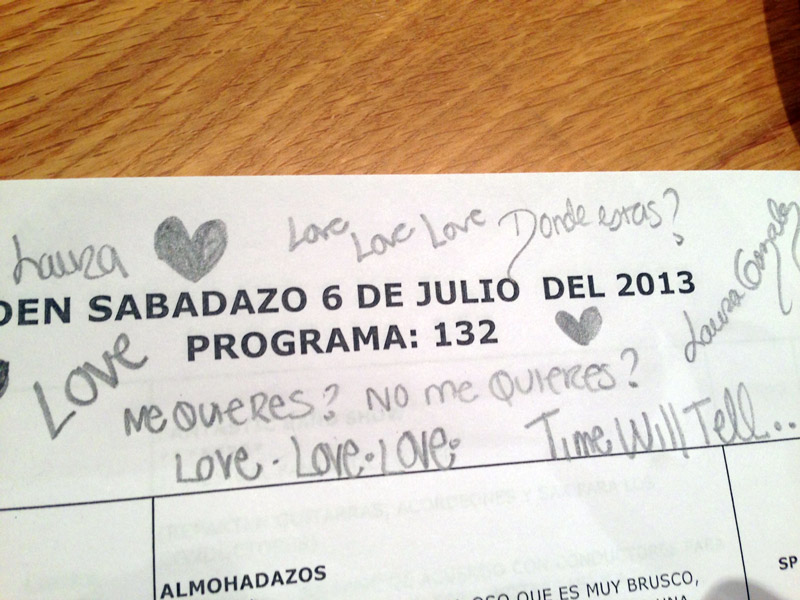 Laura Love Love Love Donde estas?
Laura Gonzalez
DEN SABADAZO 6 DE JULIO DEL 2013
PROGRAMA: 132
Love
Me quieres? No me quieres?
Love . Love . Love . Time Will Tell...
ALMOHADAZOS
OSO QUE ES MUY BRUSCO,
UNA
SP